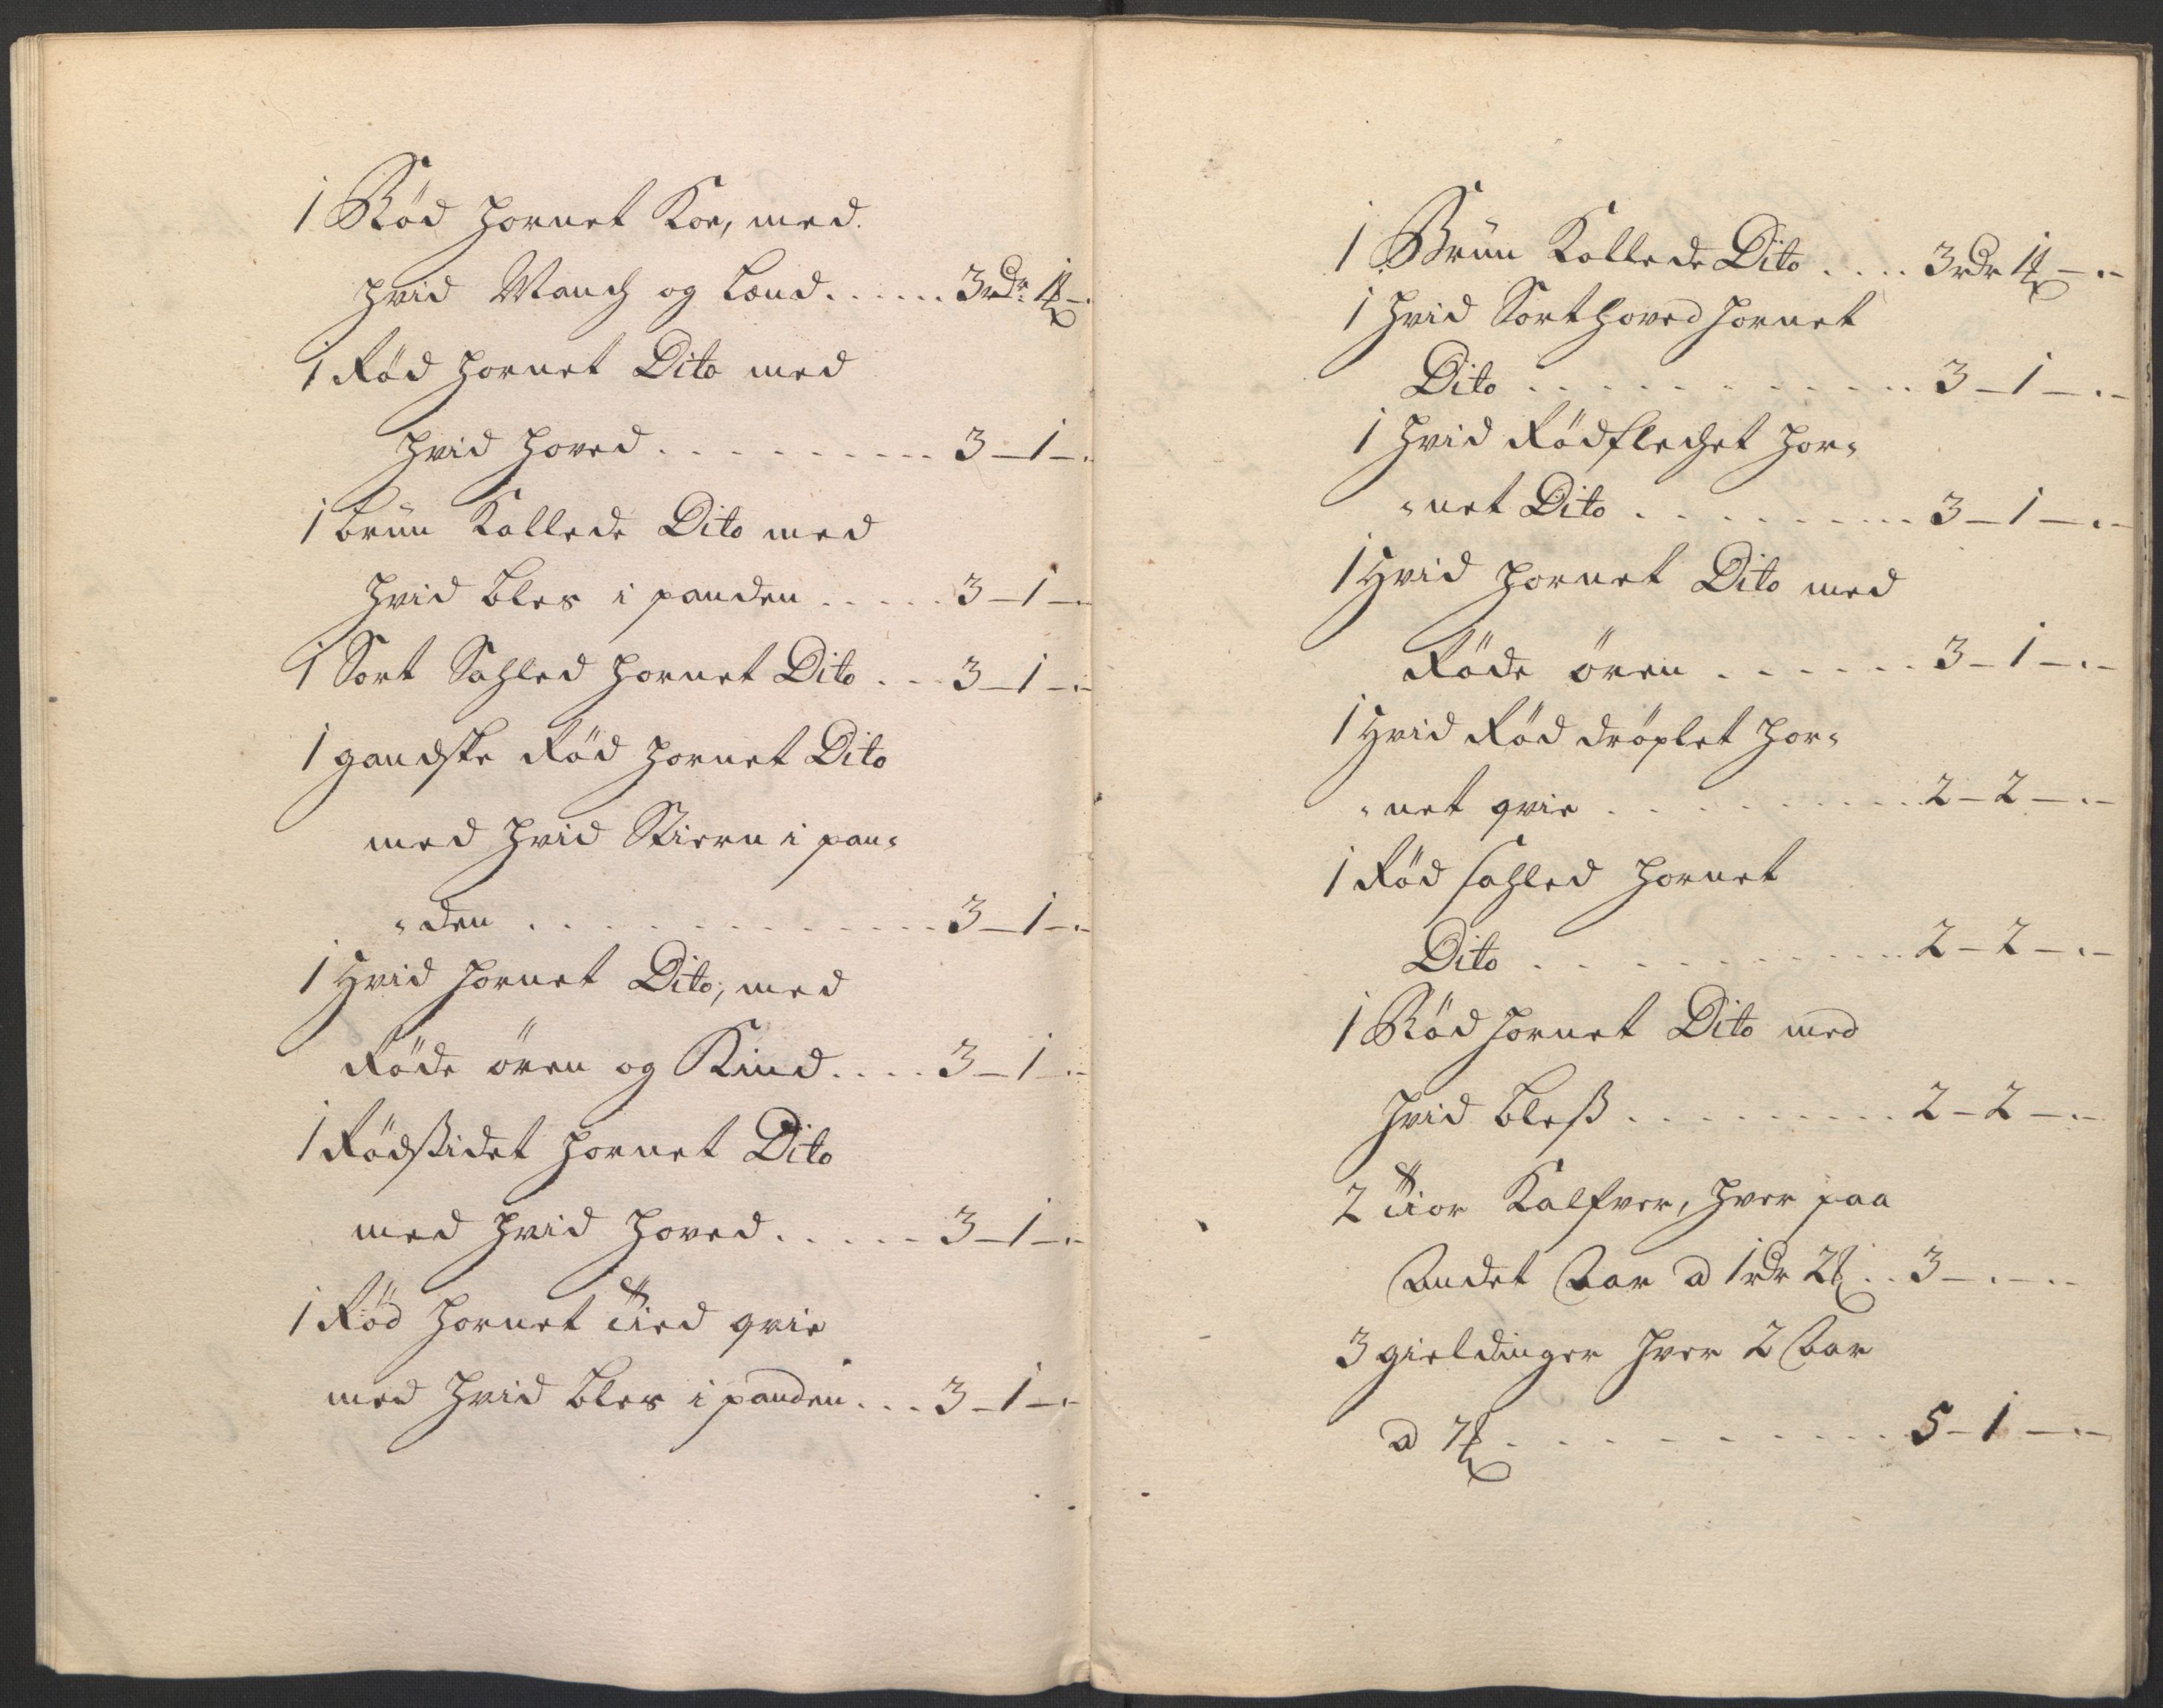 1 Röd hornet Koe, med.
hvid Manch og Lænd . . . . . . 3 rdr. 1 ₰ - .
1 Röd hornet Dito med
hvid hoved . . . . . . . . . . 3 - 1 - .
1 brün Kollede Dito med
hvid bles i panden . . . . . 3 - 1 - . -
1 Sort Sahled hornet Dito . . . 3 - 1 - . -
1 gandske Röd hornet Dito
med hvid Stiern i pan=
=den . . . . . . . . . . . . . . 3 - 1 - . -
1 Hvid hornet Dito, med
Röde ören og Kind . . . . 3 - 1 - . -
1 Rödsidet hornet Dito
med hvid hoved . . . . . 3 - 1 - . -
1 Röd hornet üng qvie
med hvid bles i panden . . . 3 - 1 - . -
1 Brün Kollede Dito . . . . 3 rdr 1 ₰ - . -
1 hvid Sorthoved hornet
Dito . . . . . . . . . . . . . 3 - 1 - . -
1 hvid Rödflechet hor=
=net Dito . . . . . . . . . . 3 - 1 - . -
1 Hvid hornet Dito med
Röde ören . . . . . . 3 - 1 - . -
1 Hvid Röd dröplet hor=
=net qvie . . . . . . . . . . 2 - 2 - . -
1 Röd sahled hornet
Dito . . . . . . . . . . . . 2 - 2 - . -
1 Röd hornet Dito med
hvid bless . . . . . . . . . 2 - 2 - . -
2 Kalfver, hver paa
Andet Aar a 1 rdr 2 ₰ . . 3 - . - . -
3 gieldinger hver 2 Aar
a 7 ₰ . . . . . . . . . . 5 - 1 - . -